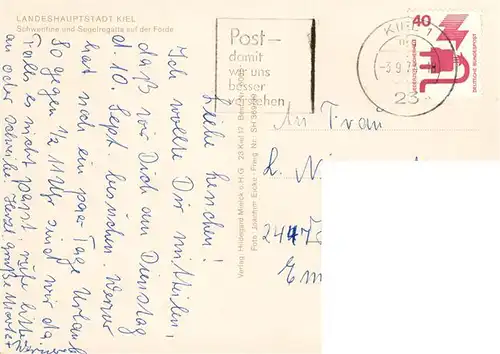 LANDESHAUPTSTADT KIEL
Schwentine und Segelregatta auf der Förde
Liebe Lenchen!
Ich wollte Dir mitteilen,
daß wir Dich am Dienstag
d. 10. Sept. besuchen. Werner
hat sich ein paar Tage Urlaub
So gegen ½ 11 Uhr sind wir da.
Falls es nicht passt, rufe bitte
an oder schreibe. Herzl. Grüße
Werner
Verlag: Hildegard Mielck o.H.G. 23 Kiel 12
Foto: Joachim Eicke - Freig. Nr. SH
Post-
damit
wir uns
besser
verstehen
KIEL 1
-3.9.7
23
40
DEUTSCHE BUNDESPOST
An Frau
L.
2447